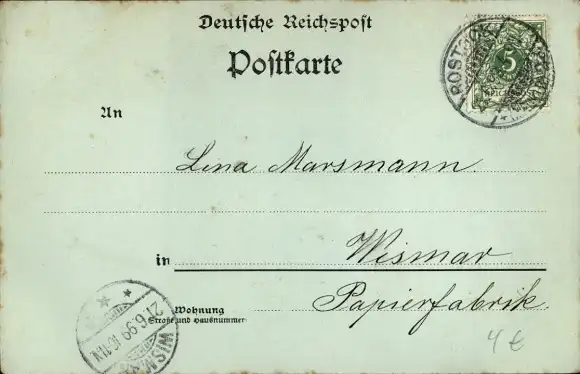 Deutsche Reichspost
Postkarte
ROSTOCK
5
An
Lina Marsmann.
in Wismar
Wohnung
Straße und Hausnummer
Papierfabrik.
21 6 99 10-11 N
WISMAR
4 €